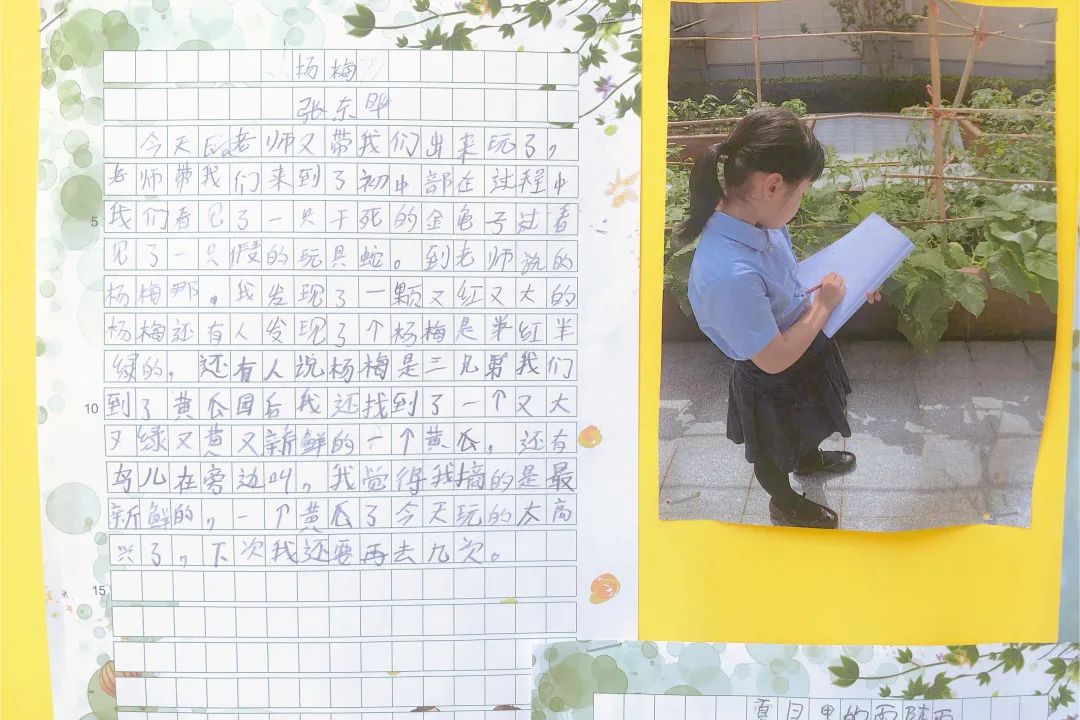 杨梅
张东
今天Eva老师又带我们出来玩了，
老师带我们来到了初中部在过程中
我们看见了一只干死的金龟子过看
见了一只假的玩具蛇。到老师说的
杨梅那，我发现了一颗又红又大的
杨梅还有人发现了个杨梅是半红半
绿的，还有人说杨梅是三儿我们
到了黄瓜园后我还找到了一个又大
又绿又黄又新鲜的一个黄瓜，还有
鸟儿在旁边叫，我觉得我摘的是最
新鲜的，一个黄瓜了今天玩的太高
兴了，下次我还要再去几次。
5
10
15
夏日里的雨